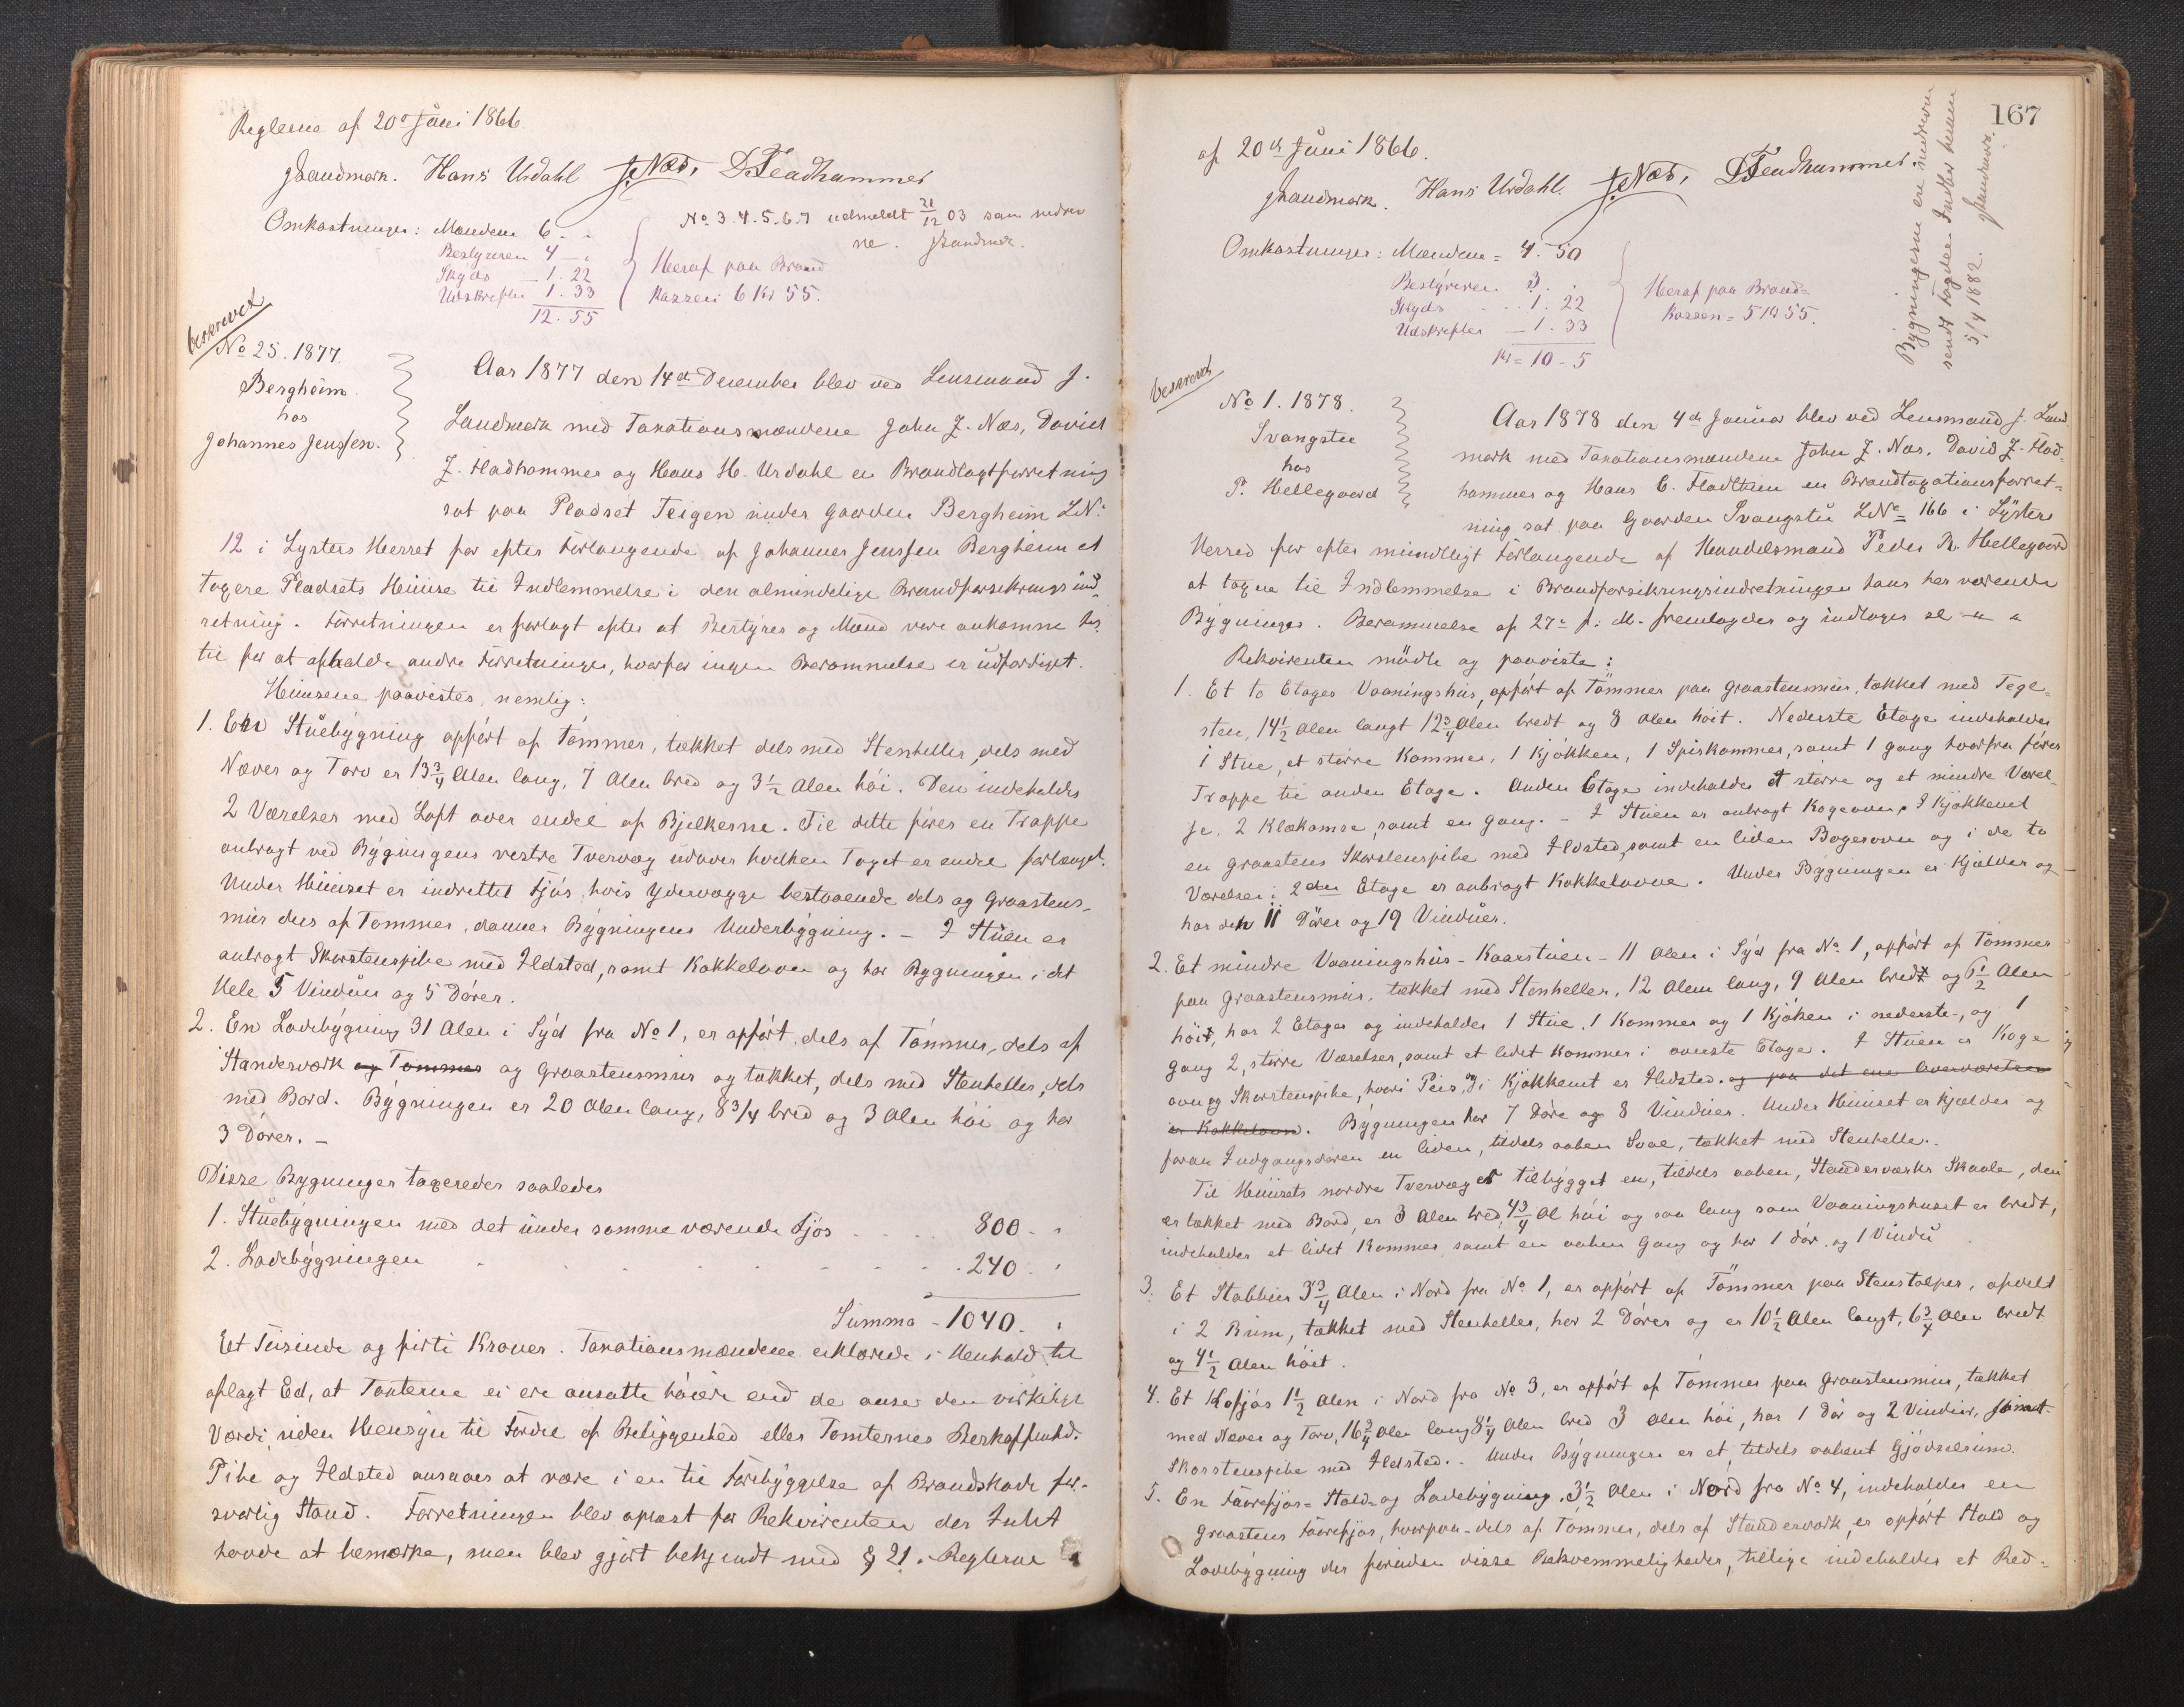 Reglerne af 20de Juni 1866
JLandmark. Hans Urdahl J. Næs, DFladhammer
Omkostninger: Mændene 6 - "
Bestyreren 4 - "
Skyds - 1. 22
Udskrifter 1. 33
12. 55
Heraf paa Brand
Kassen 6 Kr 55.
No 3. 4. 5. 6. 7 udmeldt 21/12 03 som nedrev
ne. JLandmark.
beskrevet
No 25. 1877.
Bergheim
hos
Johannes Jenssen.
Aar 1877 den 14de December blev ved Lensmand J.
Landmark med Taxationsmændene John J. Næs, David
J. Fladhammer og Hans H. Urdahl en Brandtaxtforretning
sat paa Pladset Teigen under Gaarden Bergheim LNo
12 i Lysters Herret for efter Forlangende af Johannes Jenssen Bergheim at
taxere Pladsets Huuse til Indlemmelse i den almindelige Brandforsikrings ind-
retning. Forretningen er forlagt efter at Bestyrer og Mænd vare ankomne her
til for at afholde andre Forretninger, hvorfor ingen Berammelse er udfærdiget.
Huusene paavistes, nemlig:
1. En Stuebygning opført af Tømmer, tækket dels med Stenheller, dels med
Næver og Torv er 13 3/4 Alen lang, 7 Alen bred og 3 1/2 Alen høi. Den indeholder
2 Værelser med Loft over endel af Bjelkerne. Til dette fører en Trappe
anbragt ved Bygningens vestre Tvervæg udover hvilken Taget er endel forlænget.
Under Huuset er indrettet Fjøs, hvis Ydervægge bestaaende dels ag Graastens-
mur dels af Tømmer, danner Bygningens Underbygning. - I Stuen er
anbragt Skorstenspibe med Ildsted, samt Kakkelovn og har Bygningen i det
Hele 5 Vinduer og 5 Dører.
2. En Ladebygning 31 Alen i Syd fra No 1, er opført, dels af Tømmer, dels af
Standerværk og Tømmer og Graastensmur og tækket, dels med Stenheller, dels
med Bord. Bygningen er 20 Alen lang, 8 3/4 bred og 3 Alen høi og har
3 Dører. -
Disse Bygninger taxeredes saaledes
1. Stuebygningen med det under samme værende Fjøs . . . . 800. "
2. Ladebygningen . . . . . . . . 240. "
Summa - 1040. "
Et Tusinde og firti Kroner. Taxationsmændene erklærede i Henhold til
aflagt Ed, at Taxterne ei ere ansatte høiere end de anser den virkelige
Værdi, uden Hensyn til Fordel af Beliggenhed eller Tomternes Beskaffenhed.
Pibe og Ildsted ansaaes at være i en til Forebyggelse af Brandskade for-
svarlig Stand. Forretningen blev oplæst for Rekvirenten der Intet
havde at bemærke, men blev gjort bekjendt med § 21. Reglerne
167
af 20de Juni 1866.
JLandmark. Hans Urdahl. J. Næs, DFladhammer.
Omkostninger: Mændene = 4. 50
Bestyreren 3. .
Skyds . . 1. 22
Udskrifter - 1. 33
Kr = 10 - 5
Heraf paa Brand=
Kassen = 5 Kr 55.
Bygningerne ere nedrevne
sendt taxten Intet kunn
5/4 1882. JLandmark.
beskrevet
No 1. 1878.
Svangstu
hos
P. Hellegaard
Aar 1878 den 4de Januar blev ved Lensmand J. Land
mark med Taxationsmændene John J. Næs, David J. Flad-
hammer og Hans C. Fladthun en Brandtaxationsforret=
ning sat paa Gaarden Svangstu LNo = 166 i Lysters
Herred for efter mundtligt Forlangende af Handelsmand Peder R. Hellegaard
at taxere til Indlemmelse i Brandforsikringsindretningen hans her værende
Bygninger. Berammelse af 27de f: M. fremlagdes og indtages sl - " "
Rekvirenten mødte og paaviste:
1. Et to Etages Vaaningshus, opført af Tømmer paa Graastensmur, tækket med Tegl-
sten, 14 1/2 Alen langt 12 3/4 Alen bredt og 8 Alen høit. Nederste Etage indeholder
1 Stue, et større Kammer, 1 Kjøkken, 1 Spiskammer, samt 1 gang hvorfra fører
Trappe til anden Etage. Anden Etage indeholder et større og et mindre Værel-
se, 2 Klækamre, samt en gang. - I Stuen er anbragt Kogeovn, I Kjøkkenet
en Graastens Skorstenspibe med Ildsted, samt en liden Bagerovn og i de to
Værelser i 2den Etage er anbragt Kakkelovne. Under Bygningen er Kjælder og
har den 11 Dører og 19 Vinduer.
2. Et mindre Vaaningshus - Kaarstuen - 11 Alen i Syd fra No 1, opført af Tømmer
paa Graastensmur, tækket med Stenheller, 12 Alen lang, 9 Alen bredt og 6 1/2 Alen
høit, har 2 Etager og indeholder 1 Stue, 1 Kammer og 1 Kjøken i nederste, og 1
gang 2, større Værelser, samt et lidet Kammer i øverste Etage. I Stuen er Koge
ovn og Skorstenspibe, hvori Peis, og i Kjøkkenet er Ildsted. og paa det ene Overværelsen
er Kakkelovn. Bygningen har 7 Døre og 8 Vinduer. Under Huuset er Kjælder og
foran Indgangsdøren en liden, tildels aaben Sval, tækket med Stenheller.
Til Huusets nordre Tvervæg er tilbygget en, tildels aaben, Standerværks Skaale, den
er tækket med Bord, er 3 Alen bred, 4 3/4 Al høi og saa lang som Vaaningshuset er bredt,
indeholder et lidet Kammer, samt en aaben Gang og har 1 dør og 1 Vindu
3. Et Stabbur 3 3/4 Alen i Nord fra No 1, er opført af Tømmer paa Stenstolper, afdelt
i 2 Rum, tækket med Stenheller, har 2 Dører og er 10 1/2 Alen langt, 6 3/4 Alen bredt
og 4 1/2 Alen høit.
4. Et Kofjøs 1 1/2 Alen i Nord fra No 3, er opført af Tømmer paa Graastensmur, tækket
med Næver og Torv, 16 3/4 Alen lang 8 1/4 Alen bred 3 Alen høi, har 1 Dør og 2 Vinduer, samt
Skorstenspibe med Ildsted. - Under Bygningen er et, tildels aabent Gjødselrum.
5. En Faarefjøs- Stald- og Ladebygning, 3 1/2 Alen i Nord fra No 4, indeholder en
Graastens Faarefjøs, hvorpaa - dels af Tømmer, dels af Standerværk, er opført Stald og
Ladebygning der foruden disse Bekvemmeligheder, tillige indeholder et Red-